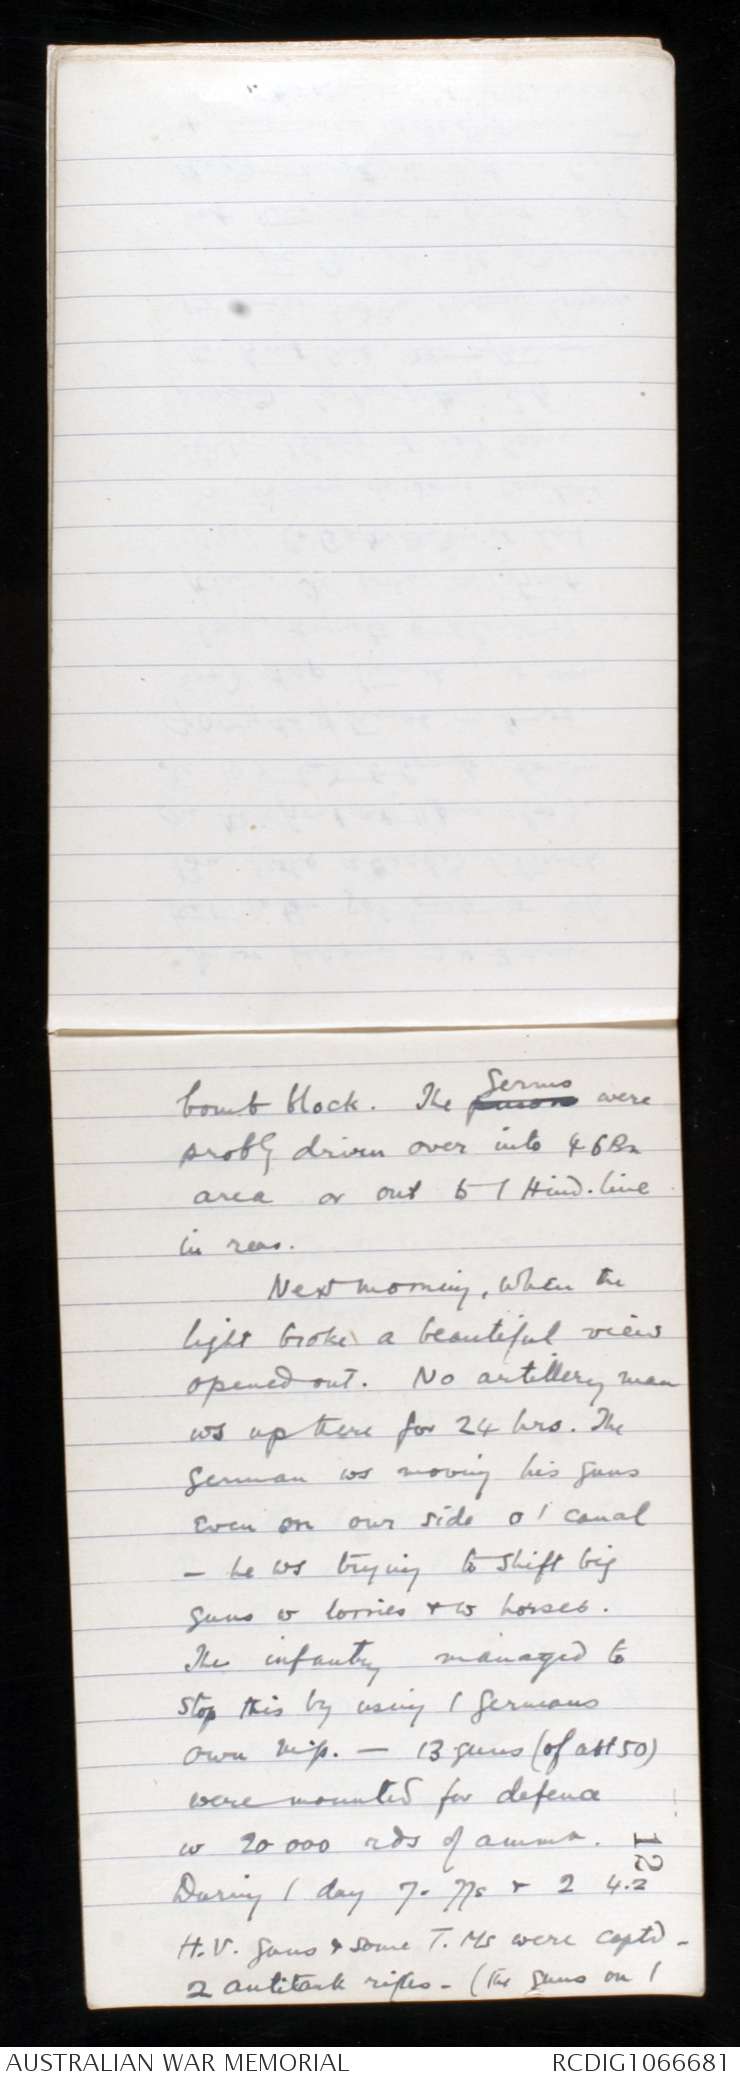 bomb block. The prison Germs were
probly driven over into 46Bn
area or out to / Hind. line
in rear.
Next morning, when the
light broke a beautiful view
opened out. No artillery man
ws up there for 24 hrs. The
German ws moving his guns
even on our side o / canal
- he ws trying to shift big
guns w lorries & w horses.
The infantry managed to
stop this by using / Germans
own m.gs. - 13 guns (of abt 50)
were mounted for defence
w 20 000 rds of ammn.
12
During / day 7. 77s & 2 4.2
H.V. guns & some T.Ms were captd -
2 antitank rifles - (the guns on /
AUSTRALIAN WAR MEMORIAL
RCDIG1066681